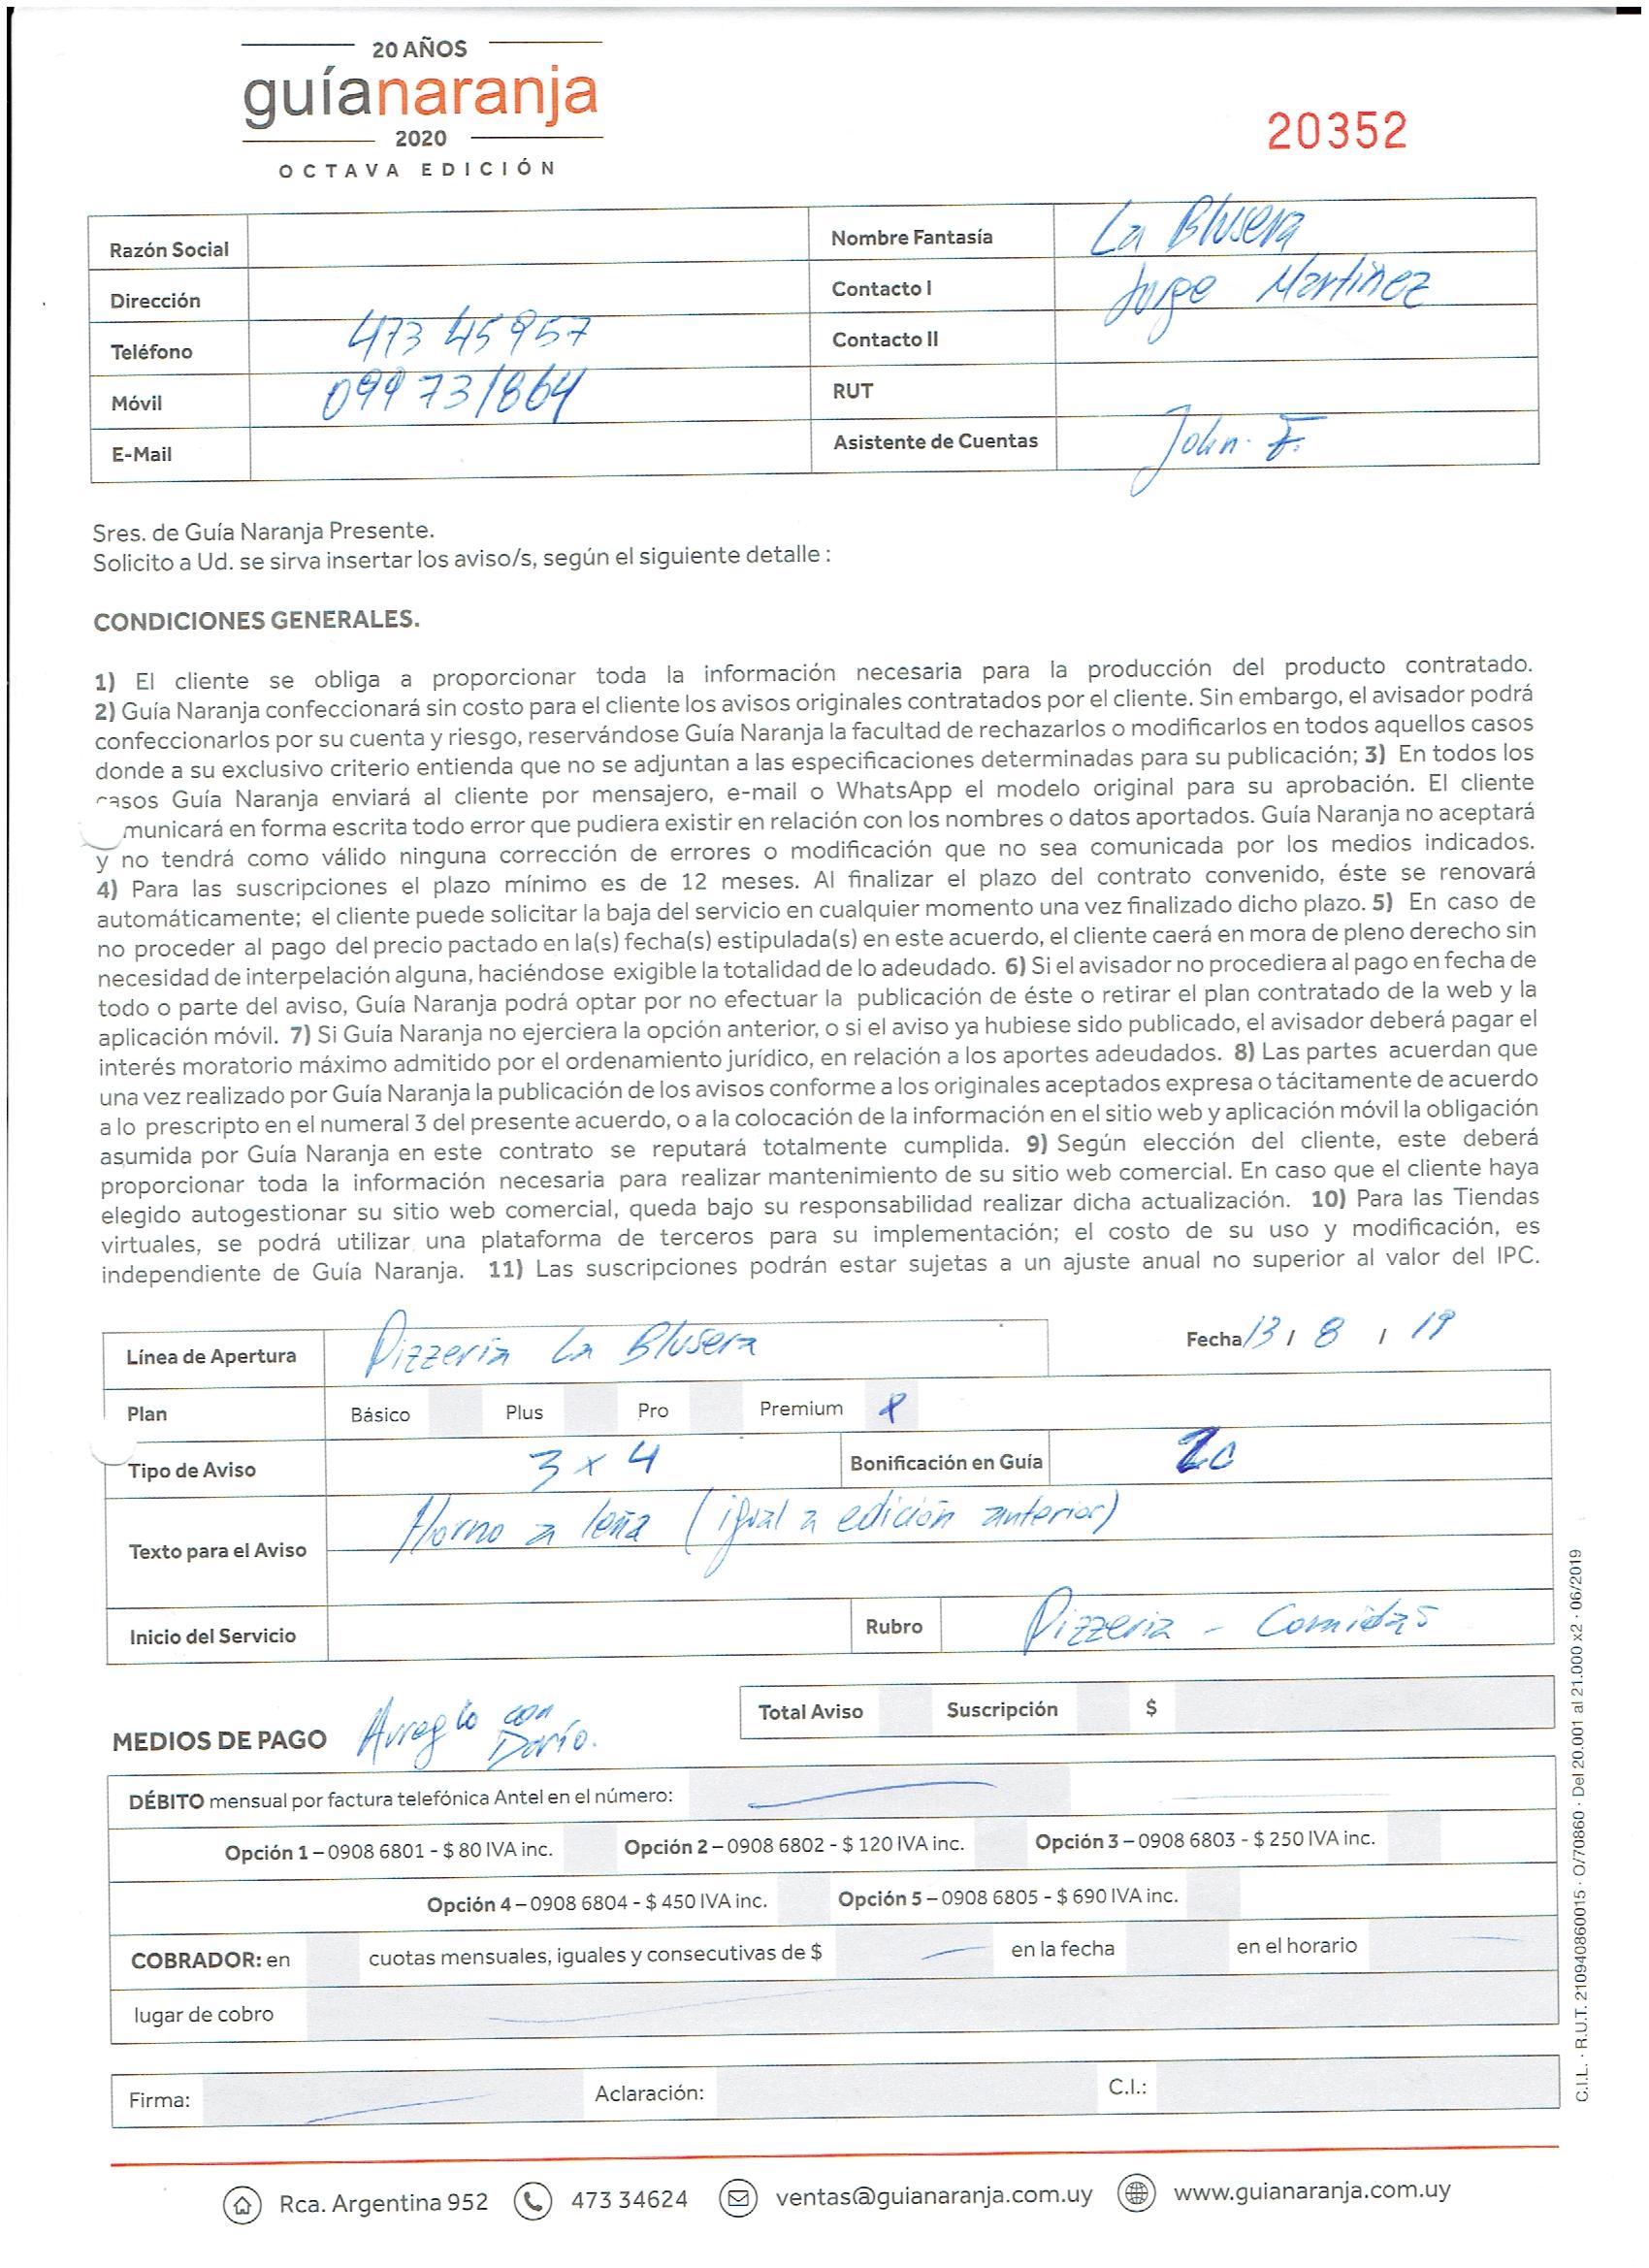 20 AÑOS
guíanaranja
2020
OCTAVA EDICIÓN
20352
Razón Social
Nombre Fantasía La Blusera
Dirección
Contacto I Jorge Martinez
Teléfono 473 45957
Contacto II
Móvil 099 731864
RUT
E-Mail
Asistente de Cuentas John. F.
Sres. de Guía Naranja Presente.
Solicito a Ud. se sirva insertar los aviso/s, según el siguiente detalle :
CONDICIONES GENERALES.
1) El cliente se obliga a proporcionar toda la información necesaria para la producción del producto contratado.
2) Guía Naranja confeccionará sin costo para el cliente los avisos originales contratados por el cliente. Sin embargo, el avisador podrá
confeccionarlos por su cuenta y riesgo, reservándose Guía Naranja la facultad de rechazarlos o modificarlos en todos aquellos casos
donde a su exclusivo criterio entienda que no se adjuntan a las especificaciones determinadas para su publicación; 3) En todos los
casos Guía Naranja enviará al cliente por mensajero, e-mail o WhatsApp el modelo original para su aprobación. El cliente
municará en forma escrita todo error que pudiera existir en relación con los nombres o datos aportados. Guía Naranja no aceptará
y no tendrá como válido ninguna corrección de errores o modificación que no sea comunicada por los medios indicados.
4) Para las suscripciones el plazo mínimo es de 12 meses. Al finalizar el plazo del contrato convenido, éste se renovará
automáticamente; el cliente puede solicitar la baja del servicio en cualquier momento una vez finalizado dicho plazo. 5) En caso de
no proceder al pago del precio pactado en la(s) fecha(s) estipulada(s) en este acuerdo, el cliente caerá en mora de pleno derecho sin
necesidad de interpelación alguna, haciéndose exigible la totalidad de lo adeudado. 6) Si el avisador no procediera al pago en fecha de
todo o parte del aviso, Guía Naranja podrá optar por no efectuar la publicación de éste o retirar el plan contratado de la web y la
aplicación móvil. 7) Si Guía Naranja no ejerciera la opción anterior, o si el aviso ya hubiese sido publicado, el avisador deberá pagar el
interés moratorio máximo admitido por el ordenamiento jurídico, en relación a los aportes adeudados. 8) Las partes acuerdan que
una vez realizado por Guía Naranja la publicación de los avisos conforme a los originales aceptados expresa o tácitamente de acuerdo
a lo prescripto en el numeral 3 del presente acuerdo, o a la colocación de la información en el sitio web y aplicación móvil la obligación
asumida por Guía Naranja en este contrato se reputará totalmente cumplida. 9) Según elección del cliente, este deberá
proporcionar toda la información necesaria para realizar mantenimiento de su sitio web comercial. En caso que el cliente haya
elegido autogestionar su sitio web comercial, queda bajo su responsabilidad realizar dicha actualización. 10) Para las Tiendas
virtuales, se podrá utilizar una plataforma de terceros para su implementación; el costo de su uso y modificación, es
independiente de Guía Naranja. 11) Las suscripciones podrán estar sujetas a un ajuste anual no superior al valor del IPC.
Línea de Apertura Pizzeria La Blusera
Fecha 13 / 8 / 19
Plan Básico Plus Pro Premium X
Tipo de Aviso 3 x 4 Bonificación en Guía
Texto para el Aviso Horno a leña (igual a edición anterior)
Inicio del Servicio Rubro Pizzeria - Comidas
Total Aviso Suscripción $
MEDIOS DE PAGO Arreglo con
Darío.
DÉBITO mensual por factura telefónica Antel en el número:
Opción 1 – 0908 6801 - $ 80 IVA inc. Opción 2 – 0908 6802 - $ 120 IVA inc. Opción 3 – 0908 6803 - $ 250 IVA inc.
Opción 4 – 0908 6804 - $ 450 IVA inc. Opción 5 – 0908 6805 - $ 690 IVA inc.
COBRADOR: en cuotas mensuales, iguales y consecutivas de $ en la fecha en el horario
lugar de cobro
Firma: Aclaración: C.I.:
C.I.L. · R.U.T. 210940860015 · O/70860 · Del 20.001 al 21.000 x2 · 06/2019
Rca. Argentina 952 473 34624 ventas@guianaranja.com.uy www.guianaranja.com.uy